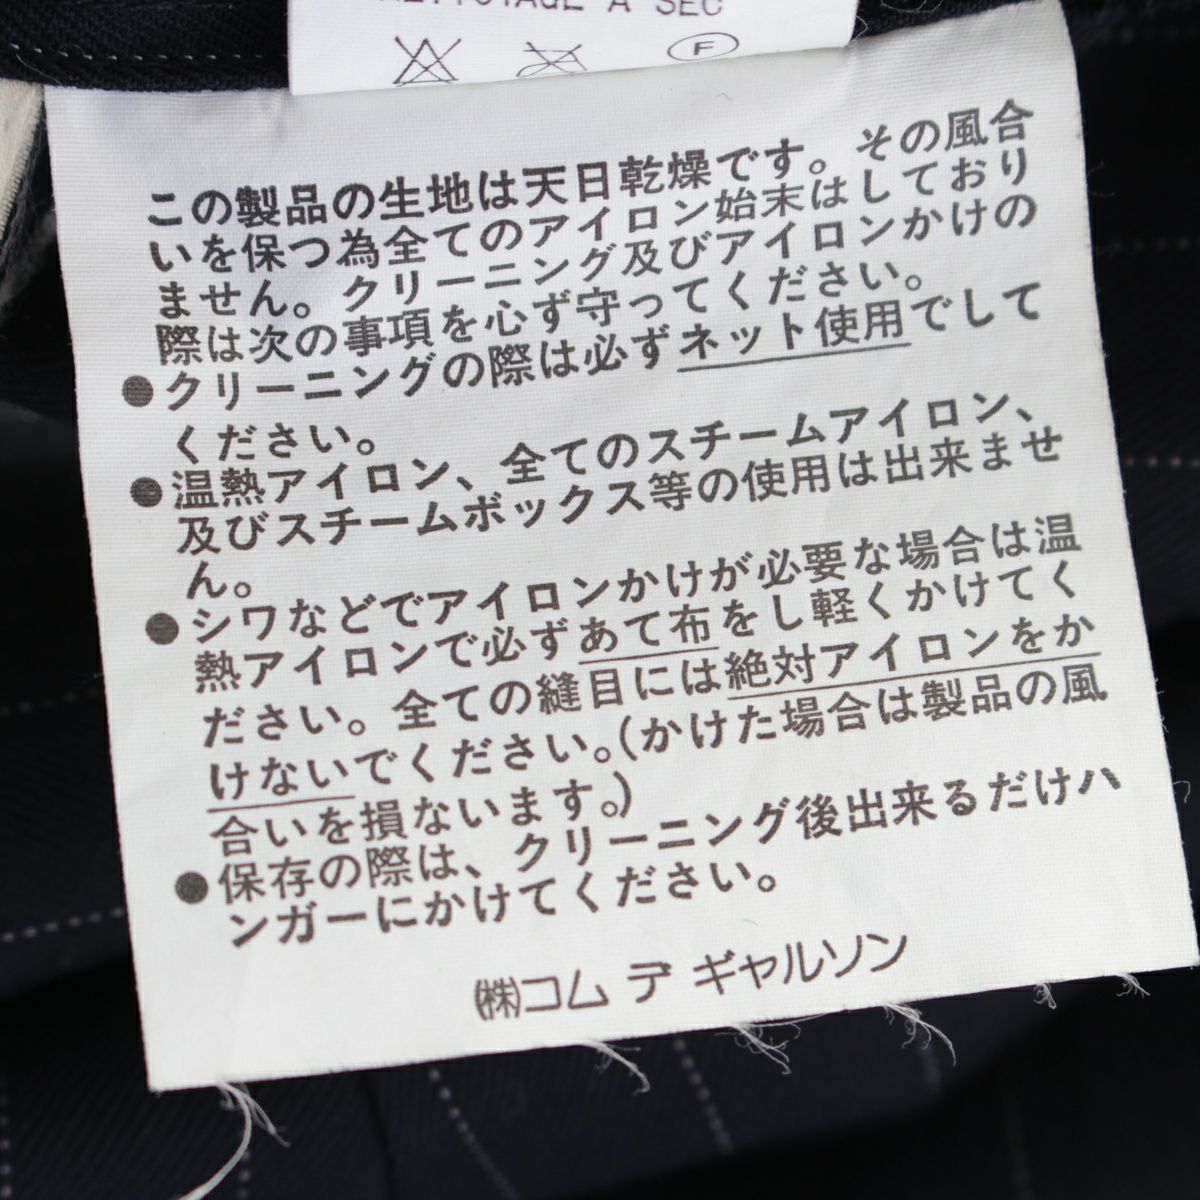 NETTOYAGE A SEC
F
この製品の生地は天日乾燥です。その風合
いを保つ為全てのアイロン始末はしており
ません。クリーニング及びアイロンかけの
際は次の事項を心ず守ってください。
●クリーニングの際は必ずネット使用でして
ください。
●温熱アイロン、全てのスチームアイロン、
及びスチームボックス等の使用は出来ませ
ん。
●シワなどでアイロンかけが必要な場合は温
熱アイロンで必ずあて布をし軽くかけてく
ださい。全ての縫目には絶対アイロンをか
けないでください。(かけた場合は製品の風
合いを損ないます。)
●保存の際は、クリーニング後出来るだけハ
ンガーにかけてください。
㈱コム デ ギャルソン